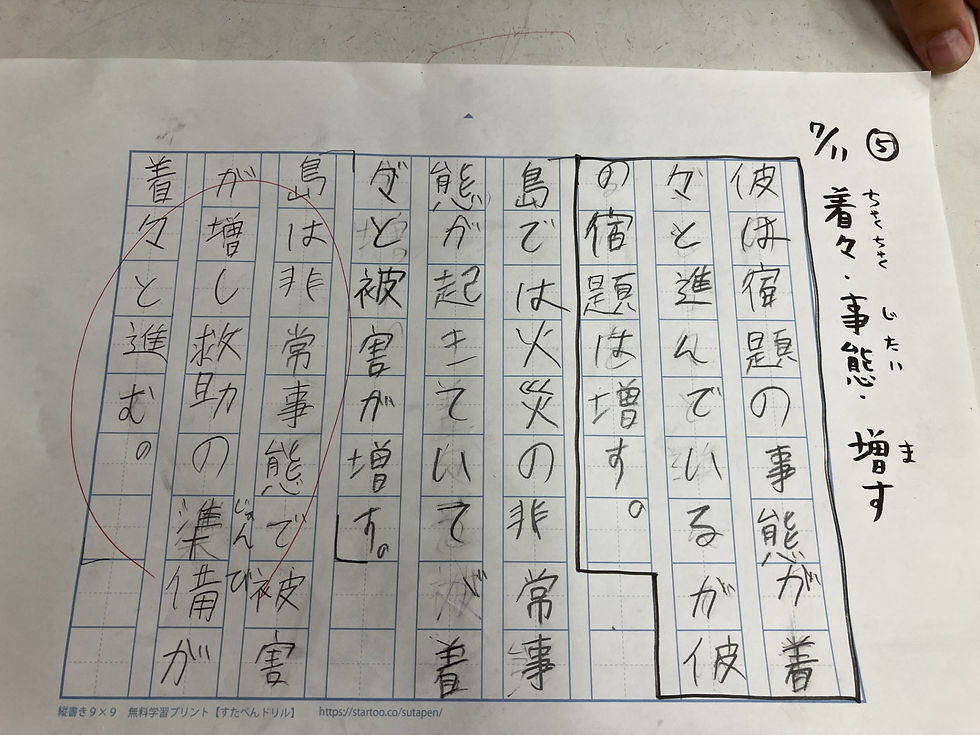 7/11 ⑤
ちゃくちゃく じたい ま
着々・事態・増す
彼は宿題の事態が着
々と進んでいるが彼
の宿題は増す。
島では火災の非常事
態が起きていてが着
々と被害が増す。
島は非常事態で被害
じゅんび
が増し救助の準備が
着々と進む。
縦書き9×9 無料学習プリント【すたぺんドリル】 https://startoo.co/sutapen/